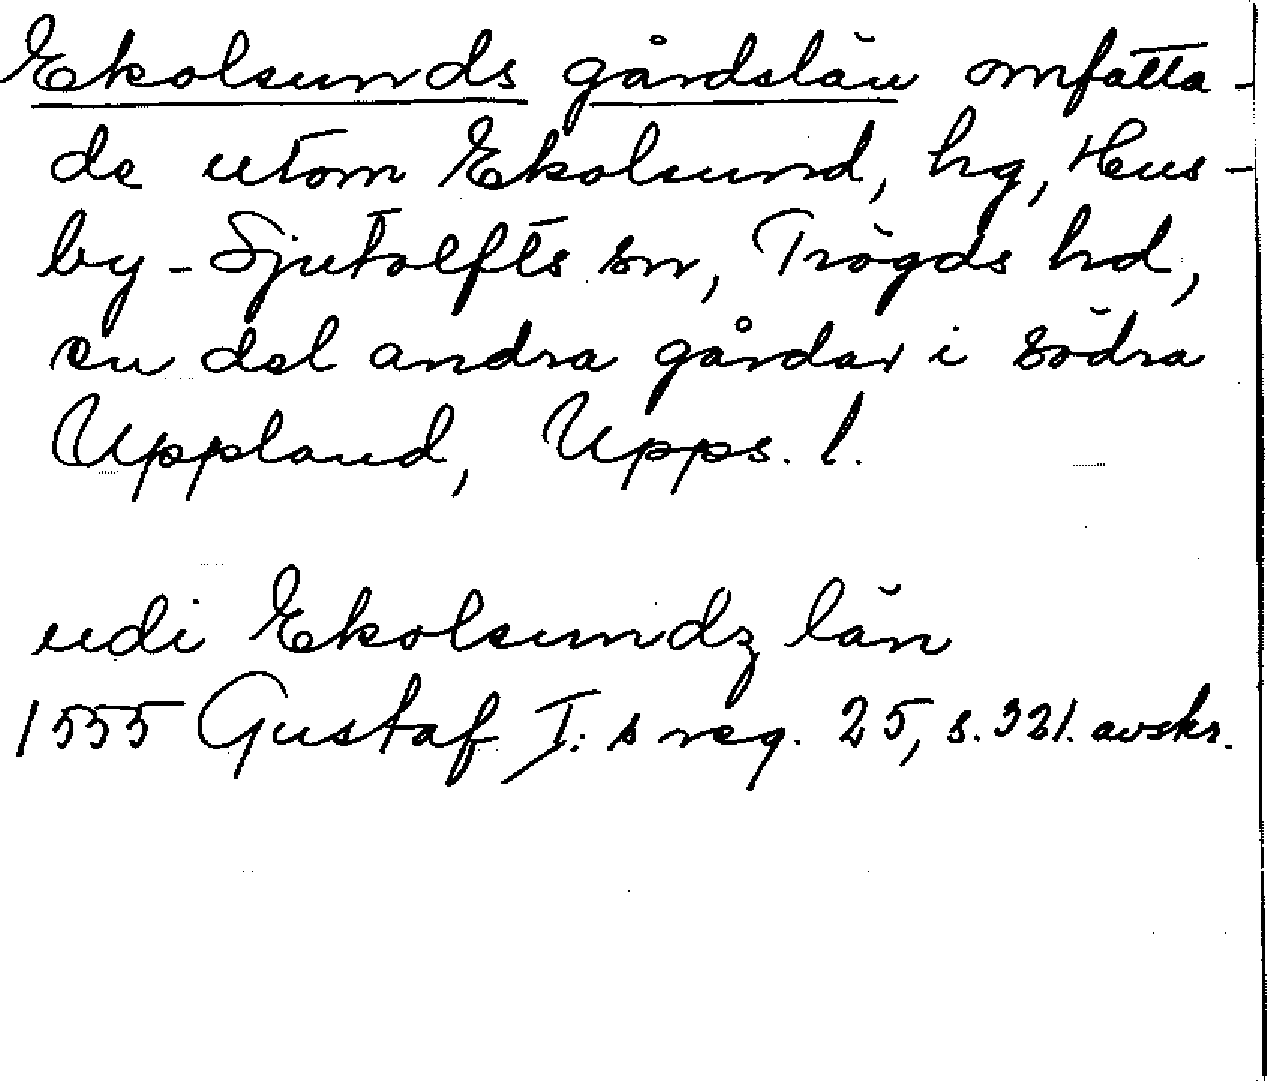 Ekolsunds gårdslän omfatta-
de utom Ekolsund, hg, Hus-
by-Sjutolfts sn, Trögds hd,
en del andra gårdar i södra
Uppland, Upps. l.
udi Ekolsundz län
1555 Gustaf I:s reg. 25, s. 321. avskr.